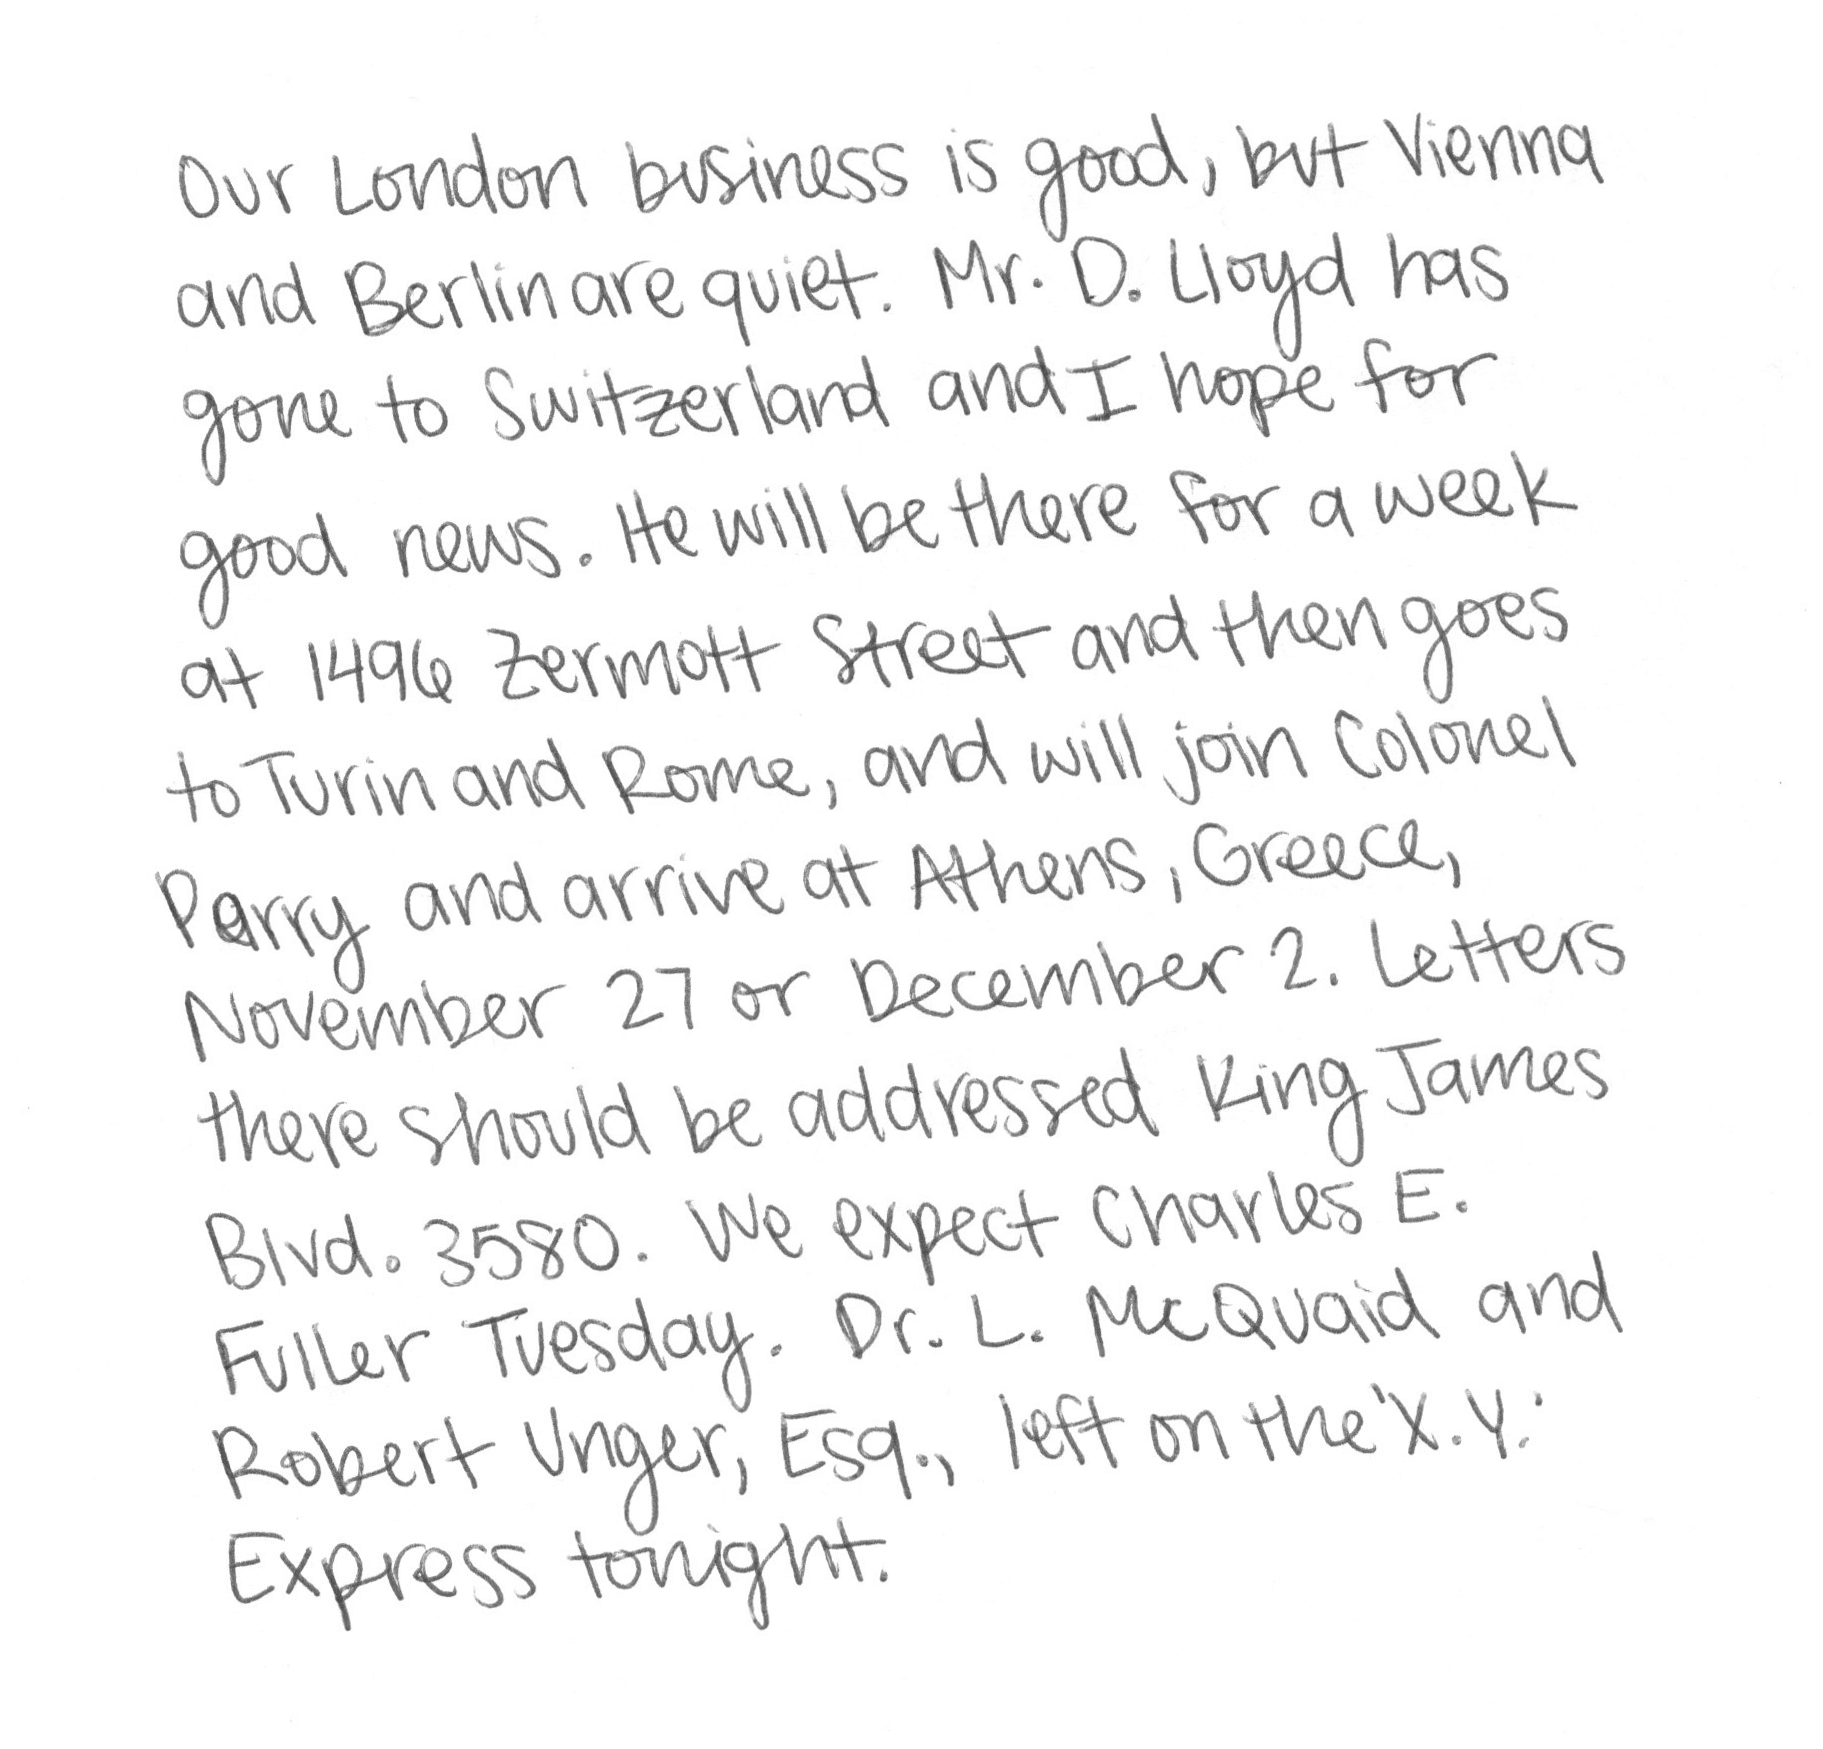 Our London business is good, but Vienna
and Berlin are quiet. Mr. D. Lloyd has
gone to Switzerland and I hope for
good news. He will be there for a week
at 1496 Zermott Street and then goes
to Turin and Rome, and will join Colonel
Parry and arrive at Athens, Greece,
November 27 or December 2. Letters
there should be addressed King James
Blvd. 3580. We expect Charles E.
Fuller Tuesday. Dr. L. McQuaid and
Robert Unger, Esq., left on the 'X.Y.'
Express tonight.